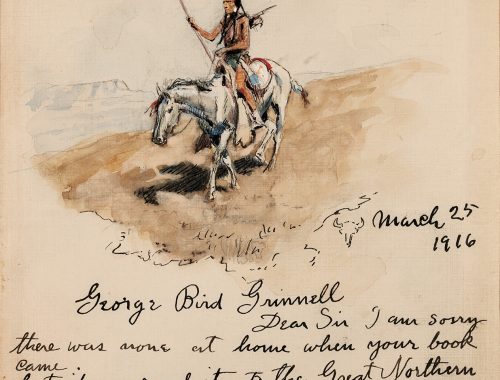 March 25
1916
George Bird Grinnell
Dear Sir I am sorry
there was none at home when your book
came
to the Great Northern